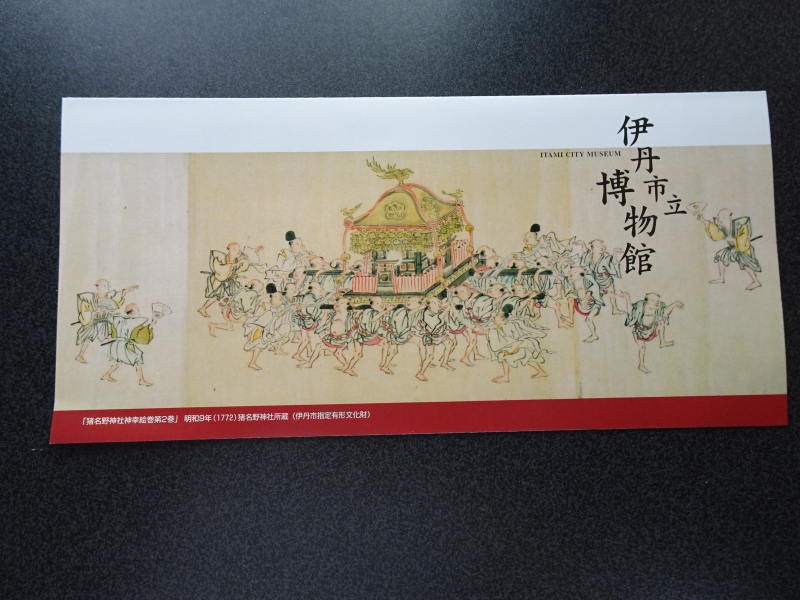 ITAMI CITY MUSEUM
伊丹市立
博物館
「猪名野神社神幸絵巻第2巻」 明和9年(1772)猪名野神社所蔵(伊丹市指定有形文化財)